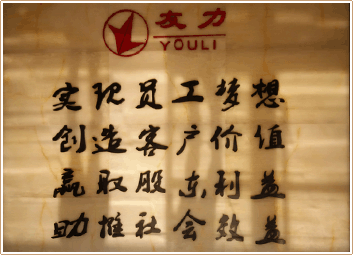 友力
YOULI
实现员工梦想
创造客户价值
赢取股东利益
助推社会效益